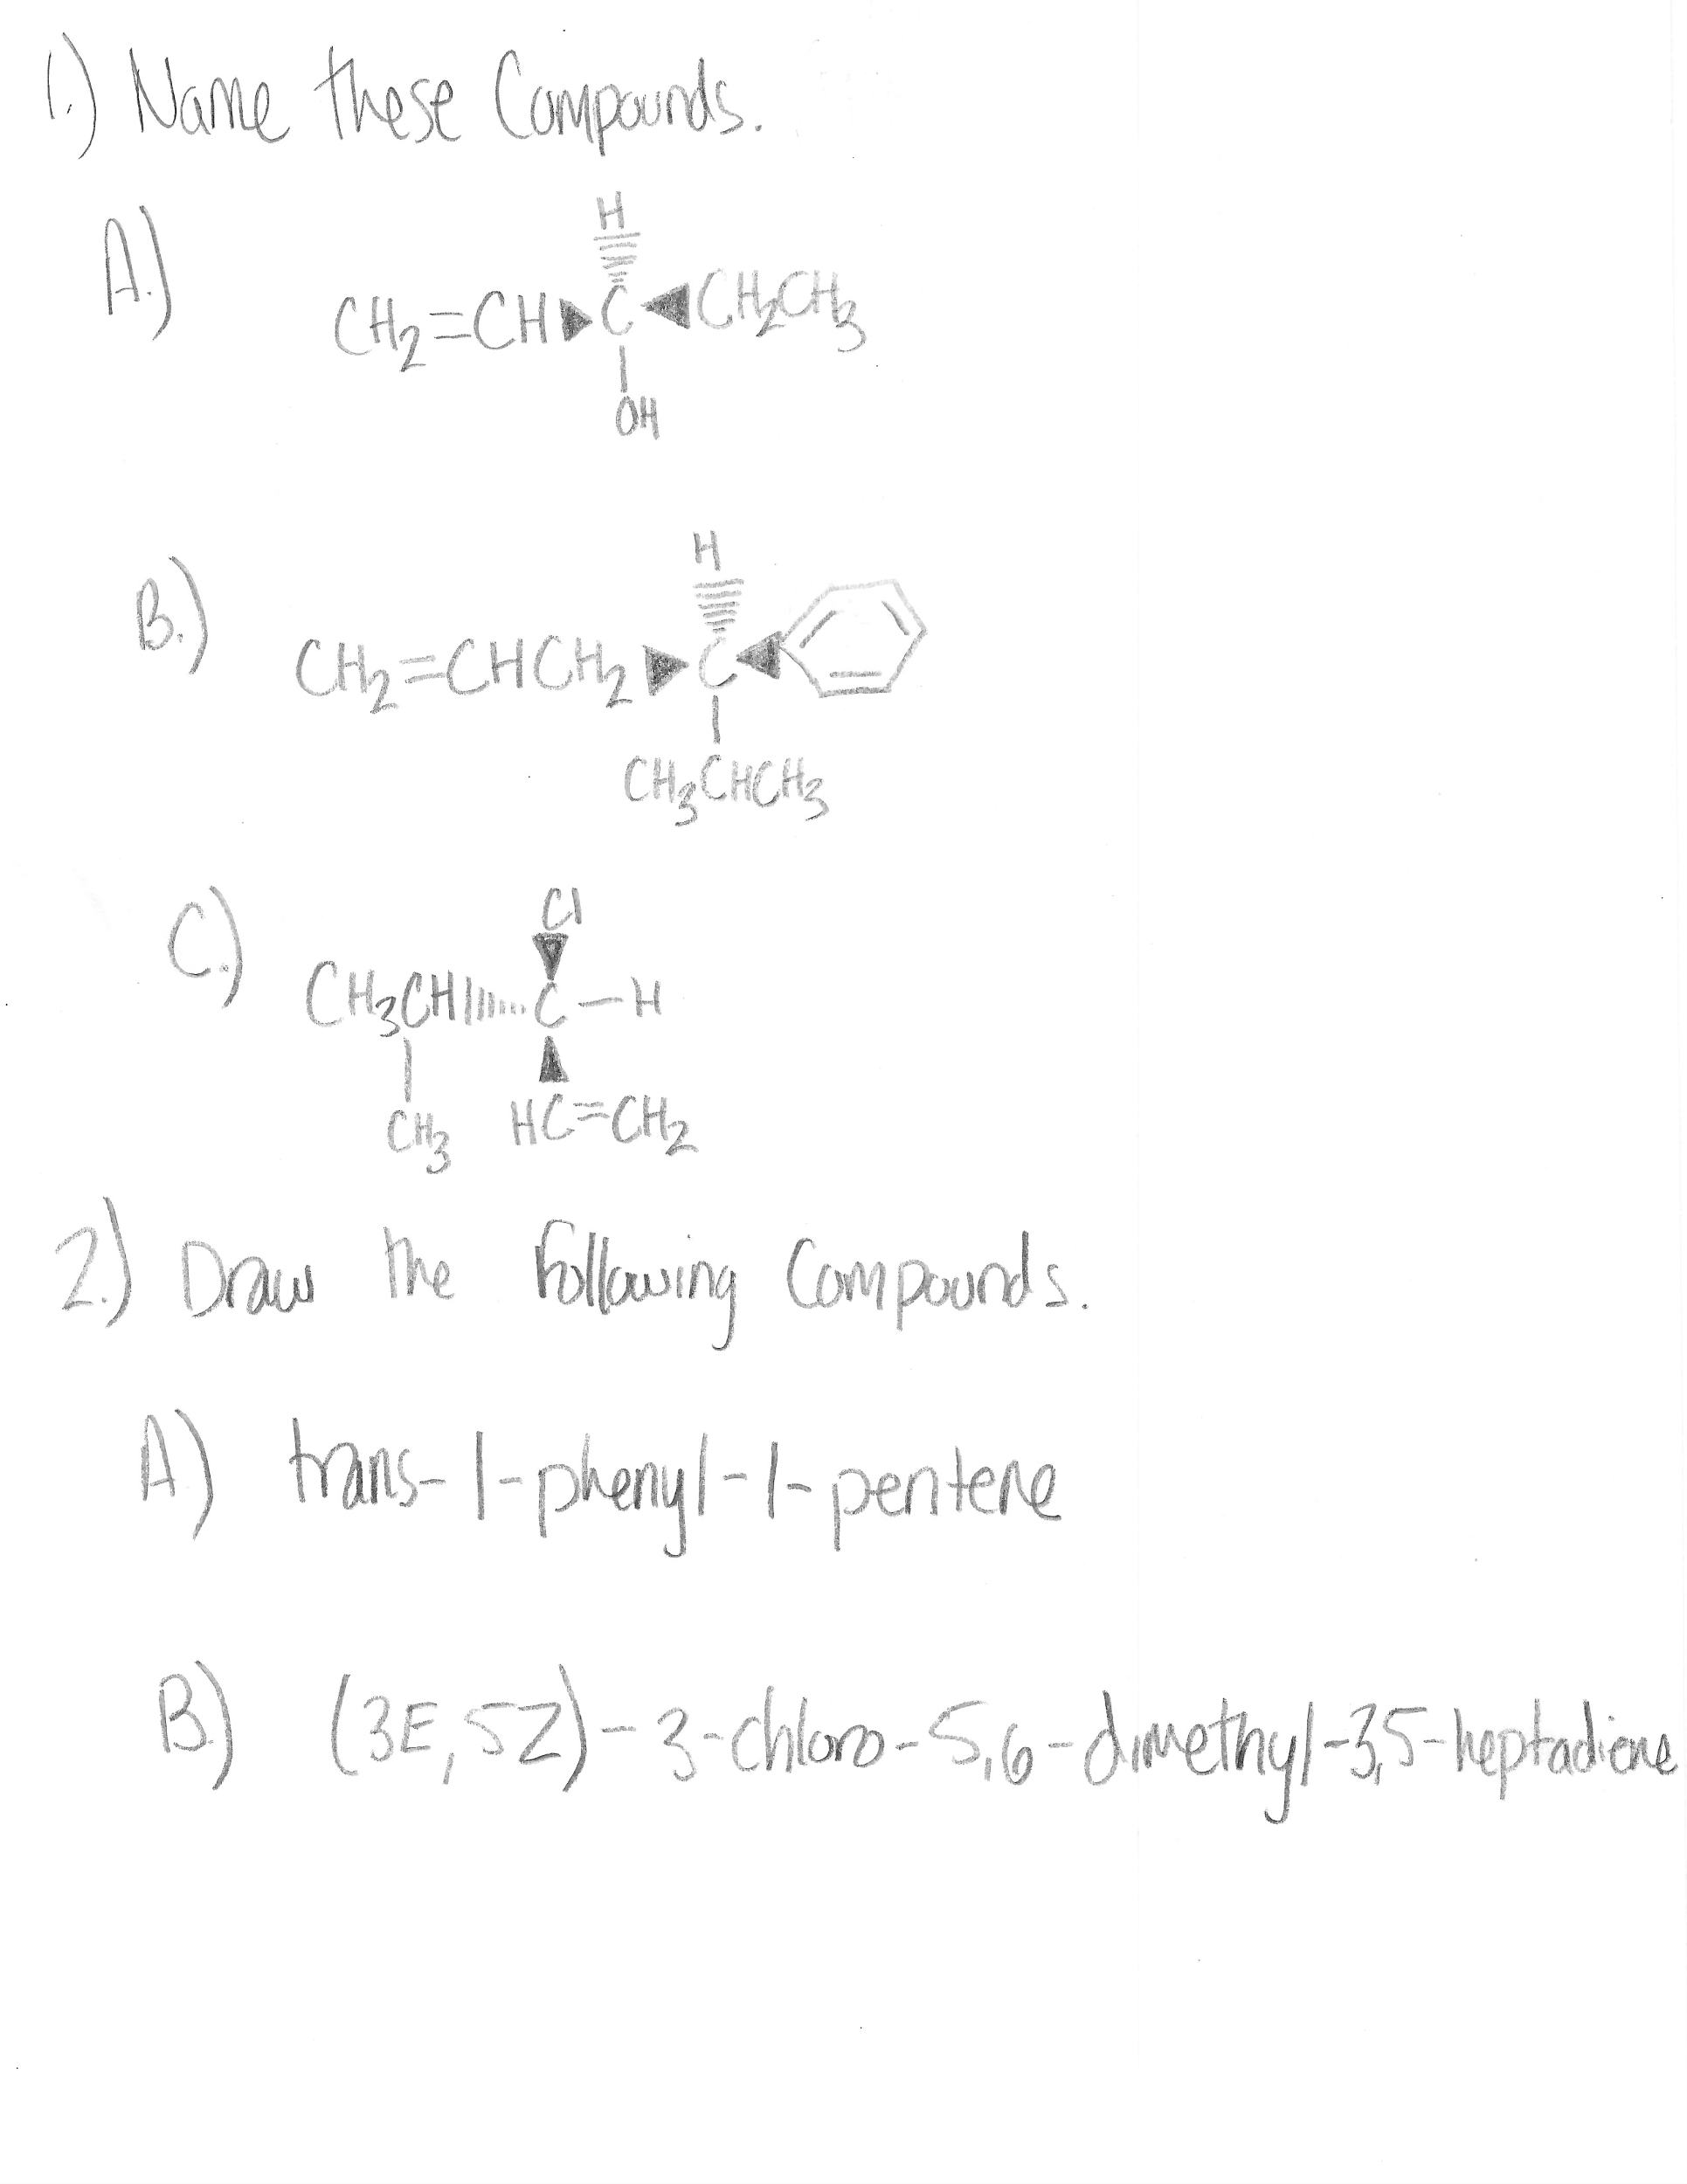 1.) Name these Compounds.
A.)
H
CH₂=CH C CH₂CH₃
OH
B.)
H
CH₂=CHCH₂ C
CH₃CHCH₃
C.)
Cl
CH₃CH C–H
CH₃ HC=CH₂
2.) Draw the following Compounds.
A) trans-1-phenyl-1-pentene
B) (3E,5Z)-3-chloro-5,6-dimethyl-3,5-heptadiene